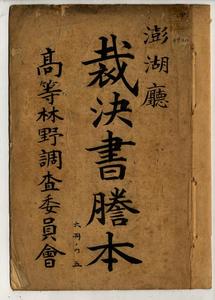 澎湖廳
裁決書謄本
六冊ノ五
高等林野調査委員會